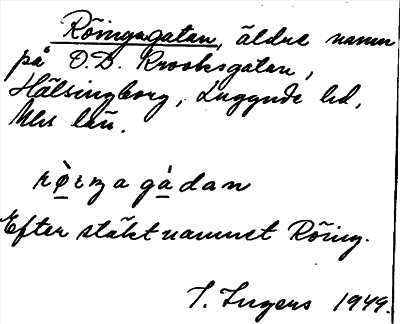 Röingagatan, äldre namn
på O.D. Krooksgatan,
Hälsingborg, Luggude hd,
Mlh län.
gàdan
Efter släktnamnet Röing.
I. Ingers 1949.